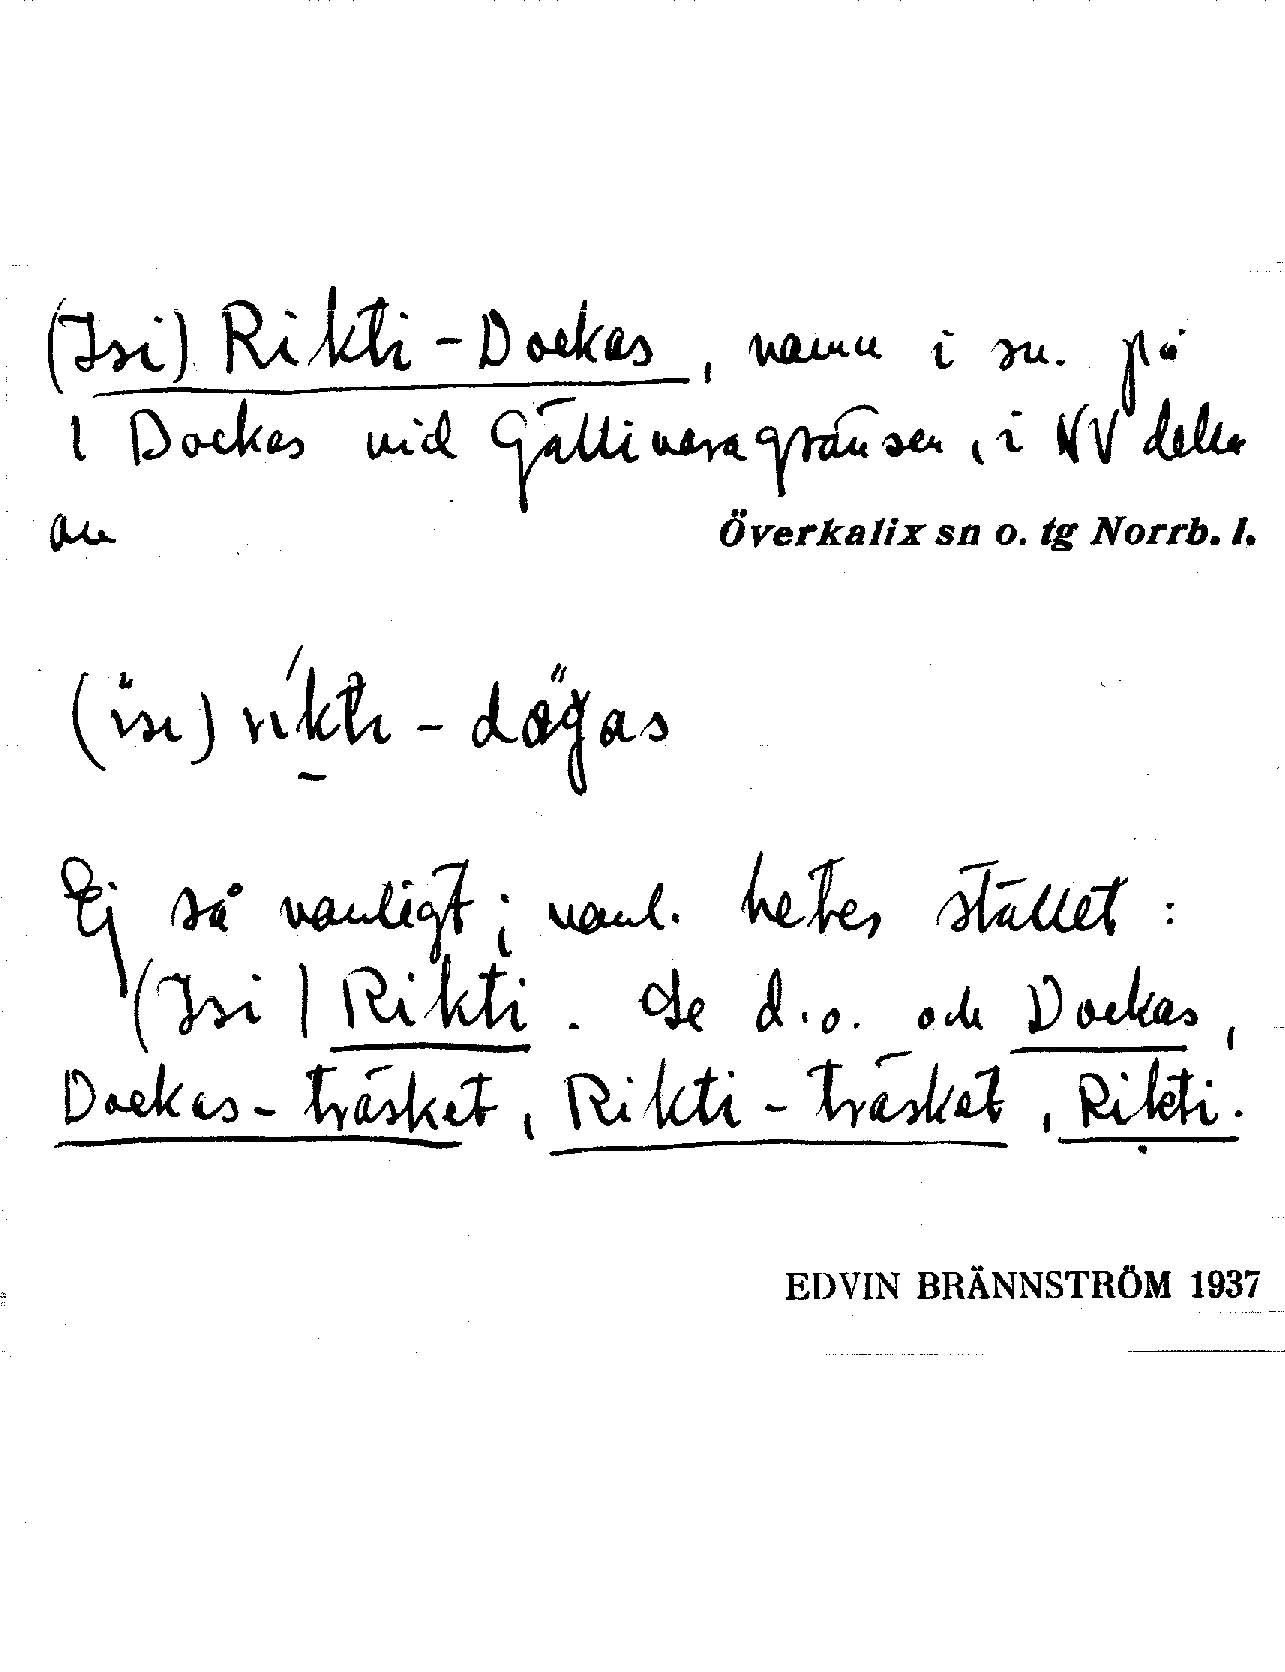 (Isi) Rikti-Dockas, namn i sn. på
1 Dockas vid Gällivaragränsen, i NV delen
av
Överkalix sn o. tg Norrb. l.
(ïsi) rikti-
Ej så vanligt; vanl. hetes stället:
(Isi) Rikti. Se d.o. och Dockas,
Dockas-träsket, Rikti-träsket, Rikti.
EDVIN BRÄNNSTRÖM 1937